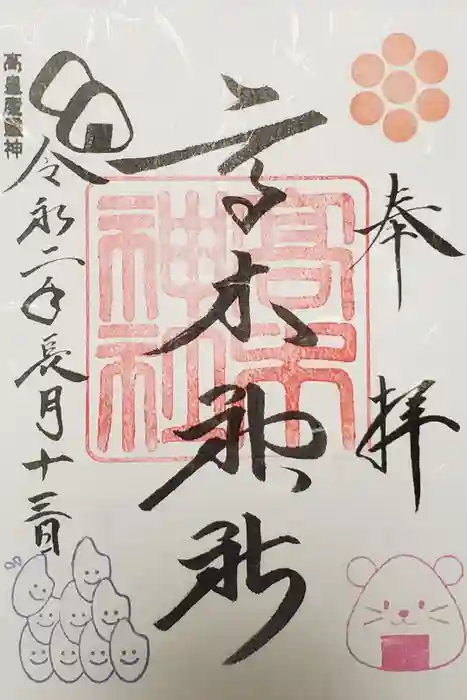 奉拝
高木神社
高木神社
令和二年長月十三日
高皇産霊神